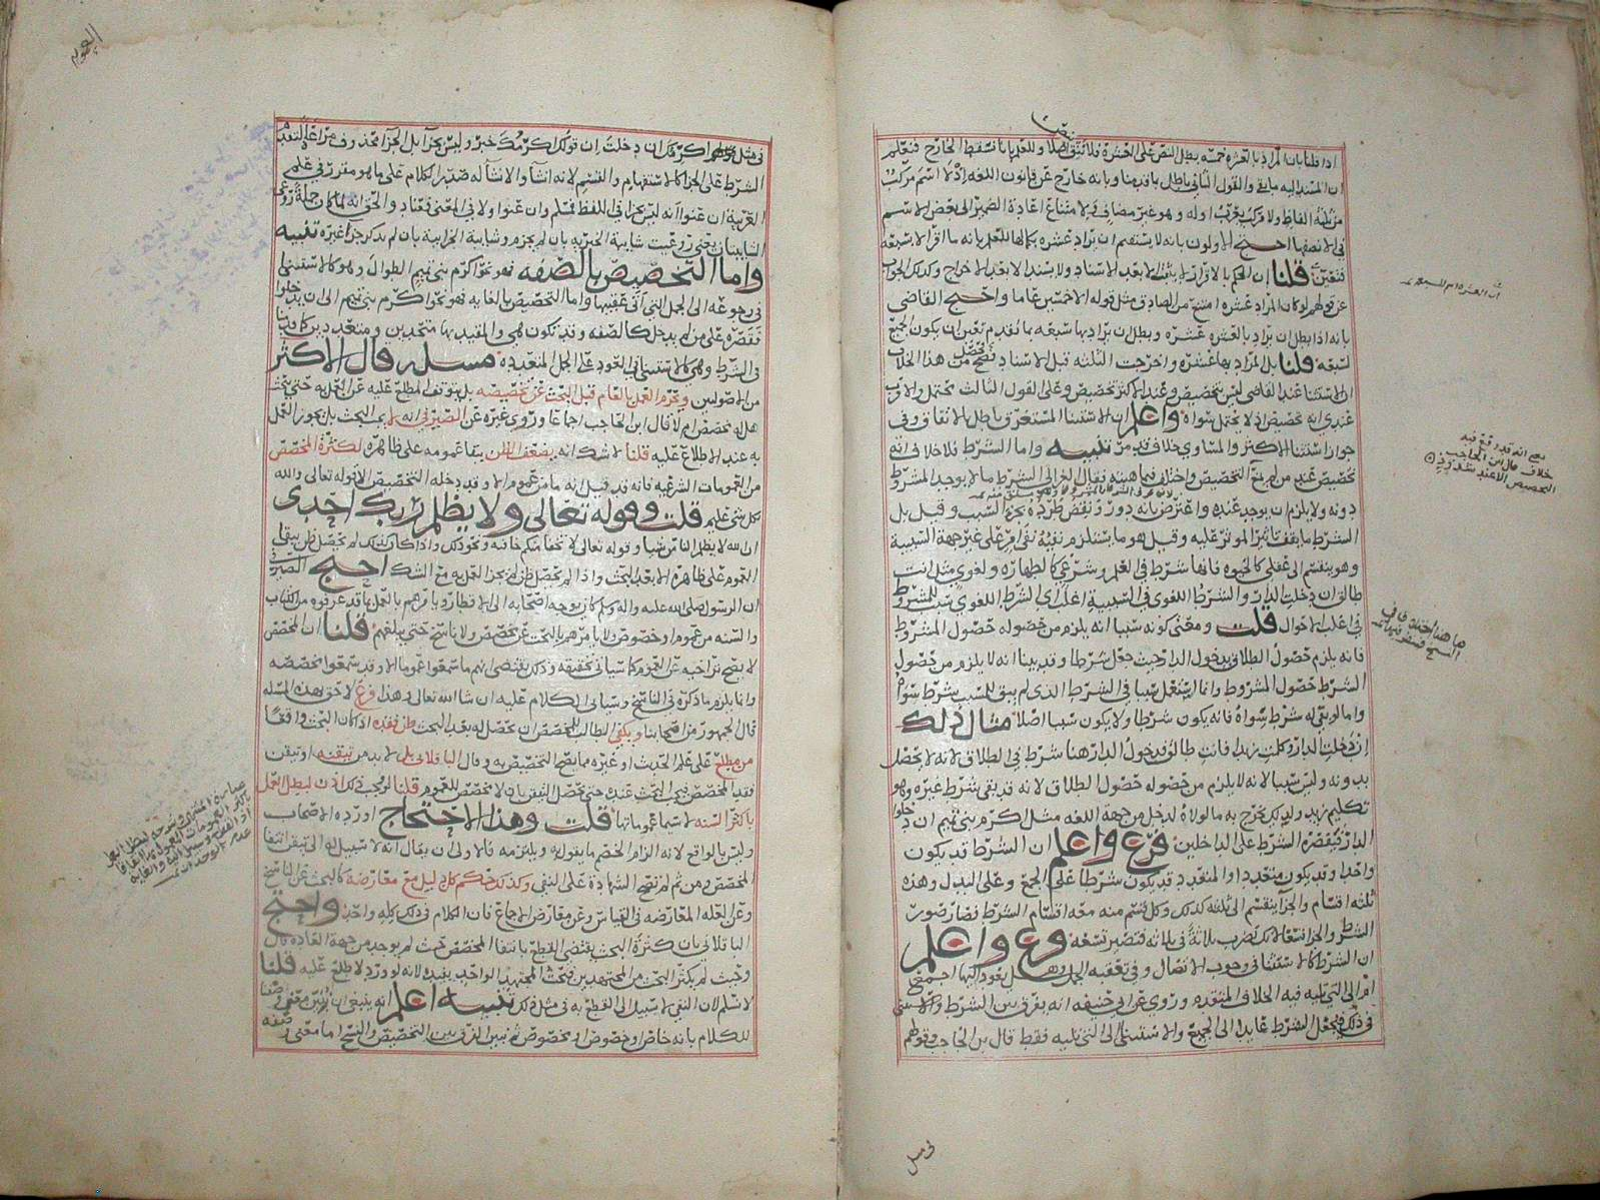 اذا قلنا بان المراد بالعشره خمسه بطل النص على العشرة فلا تبقى نصا
ان المسند اليه ما بقي والقول الثاني باطل بانه خارج عن قانون اللغه اذ لا اسم مركب
من ثلثة الفاظ ولا مركب يعرب اوله وهو غير مضاف ولامتناع اعادة الضمير الى بعض الاسم
في الا نصفها احتج الاولون بانه لا يستقيم ان يراد عشره بكمالها للعلم بانه ما اقر الا بسبعه
فتعين قلنا ان الحكم بالاقرار لا يثبت الا بعد الاسناد ولا يسند الا بعد الاخراج وكذلك الجواب
عن قولهم لو كان المراد عشره امتنع من الصادق مثل قوله الا خمسين عاما واحتج القاضي
بانه اذا بطل ان يراد بالعشره عشره وبطل ان يراد بها سبعه بما تقدم تعين ان يكون الجميع
لسبعه قلنا بل المراد بها عشره واخرجت الثلثه قبل الاسناد من هذا الخلاف
ان الاستثنا عند القاضي ليس بتخصيص وعند الاكثر تخصيص وعلى القول الثالث محتمل والاقرب
عندي انه تخصيص اذ لا يحتمل سواه واعلم ان الاستثنا المستغرق باطل بالاتفاق وفي
جواز استثنا الاكثر والمساوي خلاف قد مر تنبيه واما الشرط فلا خلاف انه
تخصيص عند من لم يمنع التخصيص واختلف في ماهيته فقال الغزالي الشرط ما لا يوجد المشروط
دونه ولا يلزم ان يوجد عنده واعترض بانه دور ونقض طرده بجزء السبب وقيل بل
الشرط ما يقف تاثير الموثر عليه وقيل هو ما يستلزم نفيه نفي امر على غير جهة السببية
وهو ينقسم الى عقلي كالحيوه فانها شرط في العلم وشرعي كالطهاره ولغوي مثل انت
طالق ان دخلت الدار والشرط اللغوي في السببية اغلب اي الشرط اللغوي سبب للمشروط
في اغلب الاحوال قلت ومعنى كونه سببا انه يلزم من حصوله حصول المشروط
فانه يلزم حصول الطلاق بدخول الدار حيث جعل شرطا وقد بينا انه لا يلزم من حصول
الشرط حصول المشروط وانما استعمل سببا في الشرط الذي لم يبق للسبب شرط سواه
واما لو بقي له شرط سواه فانه يكون شرطا ولا يكون سببا اصلا مثال ذلك
ان دخلت الدار وكلمت زيدا فانت طالق فدخول الدار هنا شرط في الطلاق لانه لا يحصل
بدونه وليس سببا لانه لا يلزم من حصوله حصول الطلاق لانه قد بقي شرط غيره وهو
تكليم زيد ولذلك يخرج به ما لولاه لدخل من جهة اللغه مثل اكرم بني تميم ان دخلوا
الدار فيقصره الشرط على الداخلين فرع واعلم ان الشرط قد يكون
واحدا وقد يكون متعددا والمتعدد قد يكون شرطا على الجمع وعلى البدل وهذه
ثلثه اقسام والجزا ينقسم الى ثلثه كذلك وكل قسم منه معه اقسام الشرط فصار صور
الشرط والجزا تسعا لانك تضرب ثلاثة في ثلاثه فتصير تسعه فرع واعلم
ان الشرط كالاستثنا في وجوب الاتصال وفي تعقبه الجمل وهل يعود اليها اجمع
ام الى التي تليه فيه الخلاف المتقدم وروي عن ابي حنيفه انه يفرق بين الشرط والاستثنى
في ذلك فيجعل الشرط عايدا الى الجميع والاستثنا الى التي تليه فقط قال بن الحاجب وقولهم
خلاف قال ابن الحاجب
في مثل
في مثل قولهم اكرمتك ان دخلت ان قولك اكرمتك خبر وليس بجزا بل الجزا محذوف مراعاة لتقدم
الشرط على الجزا كالاستفهام والقسم لانه انشا والانشا له صدر الكلام على ما هو مقرر في علم
العربية ان عنوا انه ليس بجزا في اللفظ فمسلم وان عنوا ولا في المعنى فعناد والحق انه لما كان جملة روعي
الشايبتان يعني روعيت شايبة الخبريه بان لم يجزم وشايبة الجزاييه بان لم يذكر جزا غيره تنبيه
واما التخصيص بالصفه فهو نحو اكرم بني تميم الطوال وهو كالاستثنى
في رجوعه الى الجمل التي اتى عقيبها واما التخصيص بالغايه فهو نحو اكرم بني تميم الى ان يدخلوا
فتقصره على من لم يدخل كالصفه وقد تكون هي والمقيد بها متحدين ومتعددين
في الشرط وهي كالاستثنى في العود على الجمل المتعدده مسله قال الاكثر
من الاصوليين ويحرم العمل بالعام قبل البحث عن تخصيصه بل يتوقف المطلع عليه عن العمل به حتى يبحث
هل له مخصص ام لا قال ابن الحاجب اجماعا وروي غيره عن الصيرفي انه لا يجب البحث بل يجوز العمل
به عند الاطلاع عليه قلنا لا شك انه يضعف الظن ببقا عمومه على ظاهره لكثرة المخصص
من العمومات الشرعيه فانه قد قيل انه ما من عموم الا وقد دخله التخصيص الا قوله تعالى والله
بكل شي عليم قلت وقوله تعالى ولا يظلم ربك احدا
ان الله لا يظلم الناس شيا وقوله تعالى لا تخفى منكم خافيه ونحو ذلك واذا كان كذلك لم يحصل ظن ببقا
العموم على ظاهره الا بعد البحث واذا لم يحصل ظن لم يجز العمل به مع الشك احتج الصيرفي
ان الرسول صلى الله عليه واله وسلم كان يوجه اصحابه الى الاقطار ويامرهم بالعمل بما قد عرفوه من الكتاب
والسنه من عموم وخصوص ولا يامرهم بالبحث عن مخصص ولا ناسخ حتى يبلغهم قلنا ان المخصص
لا يصح تراخيه عن العموم كما سياتي تحقيقه وذلك يقتضي انهم ما سمعوا عموما الا وقد سمعوا مخصصه
وانما يلزم ما ذكره في الناسخ وسياتي الكلام عليه ان شا الله تعالى وهذا فرع لاحق بهذه المسله
قال الجمهور من اصحابنا ويكفي الطالب للمخصص ان يحصل له بعد البحث ظن فقده اذا كان البحث واقعا
من مطلع على علم الحديث او غيره مما يصح التخصيص به وقال الباقلاني بل لا بد من تيقنه او تيقن
فقد المخصص فيجب البحث عنه حتى يحصل اليقين بان لا مخصص للعموم قلنا لو وجب ذلك اذن لبطل العمل
باكثر السنه لا سيما عموماتها قلت وهذا الاحتجاج اورده الاصحاب
وليس بالواقع لانه الزام الخصم بما يقول به ويلتزمه فالاولى ان يقال انه لا سبيل له الى تيقن انتفا
المخصص ومن ثم لم تصح الشهاده على النفي وكذلك حكم كل دليل مع معارضه كالبحث عن الناسخ
وعن العله المعارضه في القياس وعن معارض الاجماع فان الكلام في ذلك كله واحد واحتج
الباقلاني بان كثرة البحث يقتضي القطع بانتفا المخصص بحيث لم يوجد من جهة العاده قال
وحيث لم يكثر البحث من المجتهدين فبحث المجتهد الواحد يفيده لانه لو ورد لاطلع عليه قلنا
لا نسلم لان النفي لا سبيل الى القطع به في مثل ذلك تنبيه اعلم انه ينبغي ان نبين معنى وصفنا
للكلام بانه خاص او خصوص او مخصوص ثم نبين الفرق بين التخصيص والنسخ اما معنى وصفه